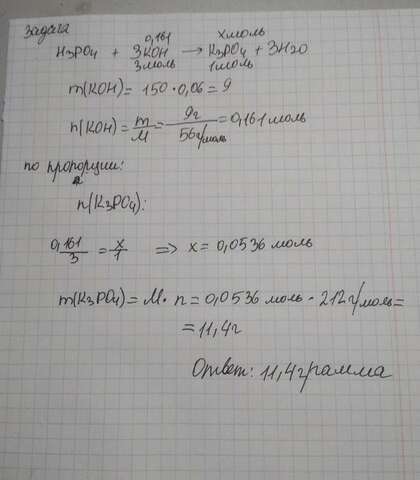 Задача
0,161 x моль
H3PO4 + 3KOH → K3PO4 + 3H2O
3 моль 1 моль
m(KOH) = 150 · 0,06 = 9
n(KOH) = m/M = 9г/56г/моль = 0,161 моль
по пропорции:
n(K3PO4):
0,161/3 = x/1 => x = 0,0536 моль
m(K3PO4) = M · n = 0,0536 моль · 212 г/моль =
= 11,4г
Ответ: 11,4 грамма